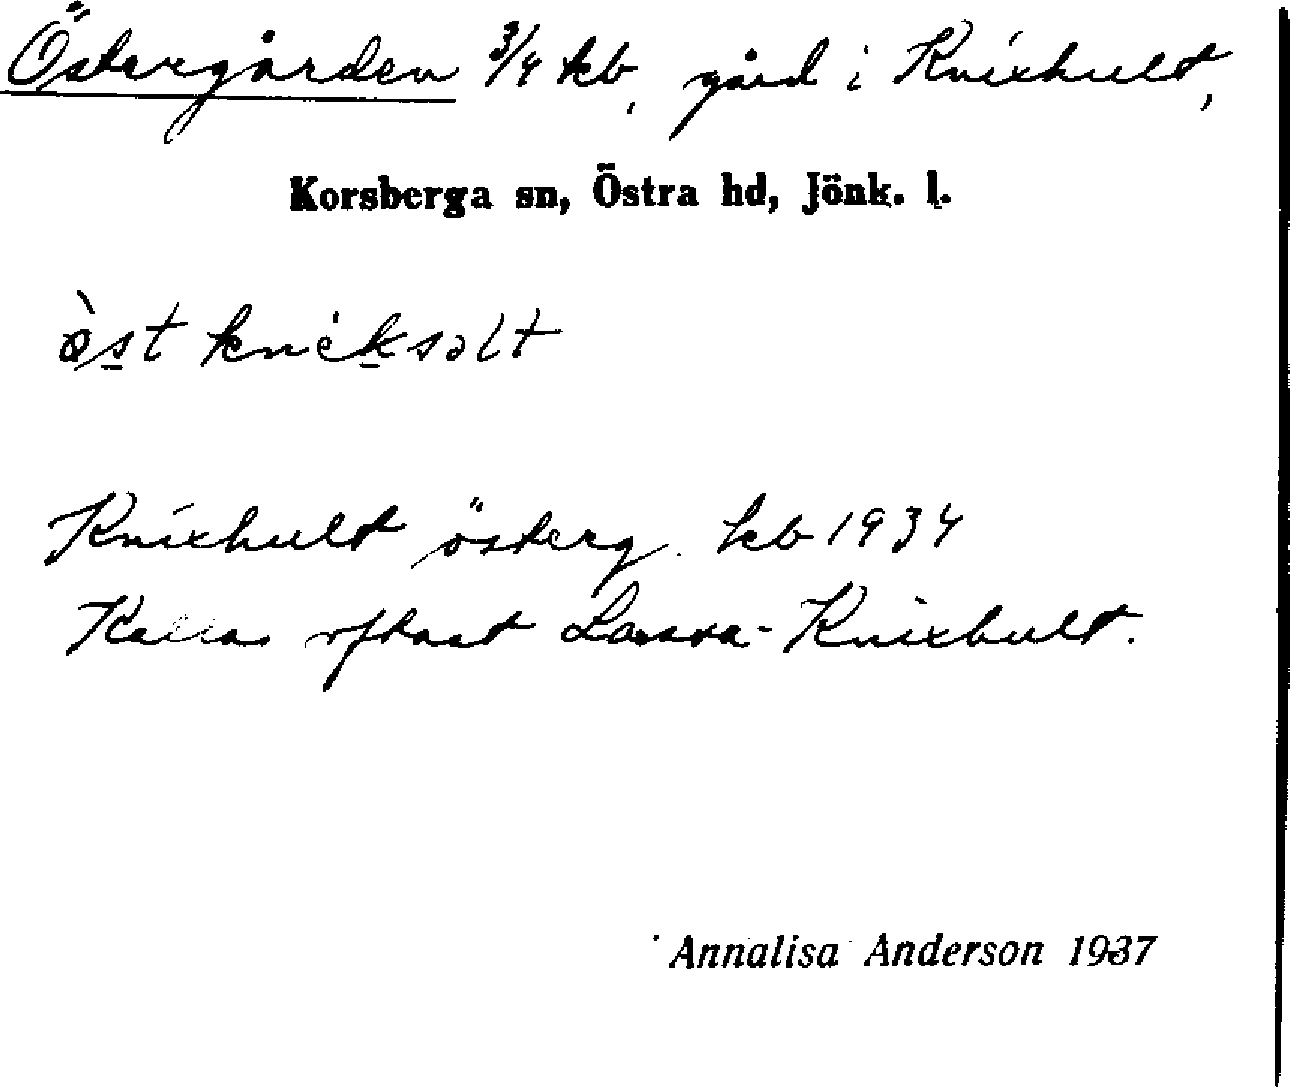 Östergården 3/4 kb, gård i Knixhult,
Korsberga sn, Östra hd, Jönk. l.
öst
Knixhult österg. kb 1934
Kallas oftast Lassa-Knixhult.
Annalisa Anderson 1937